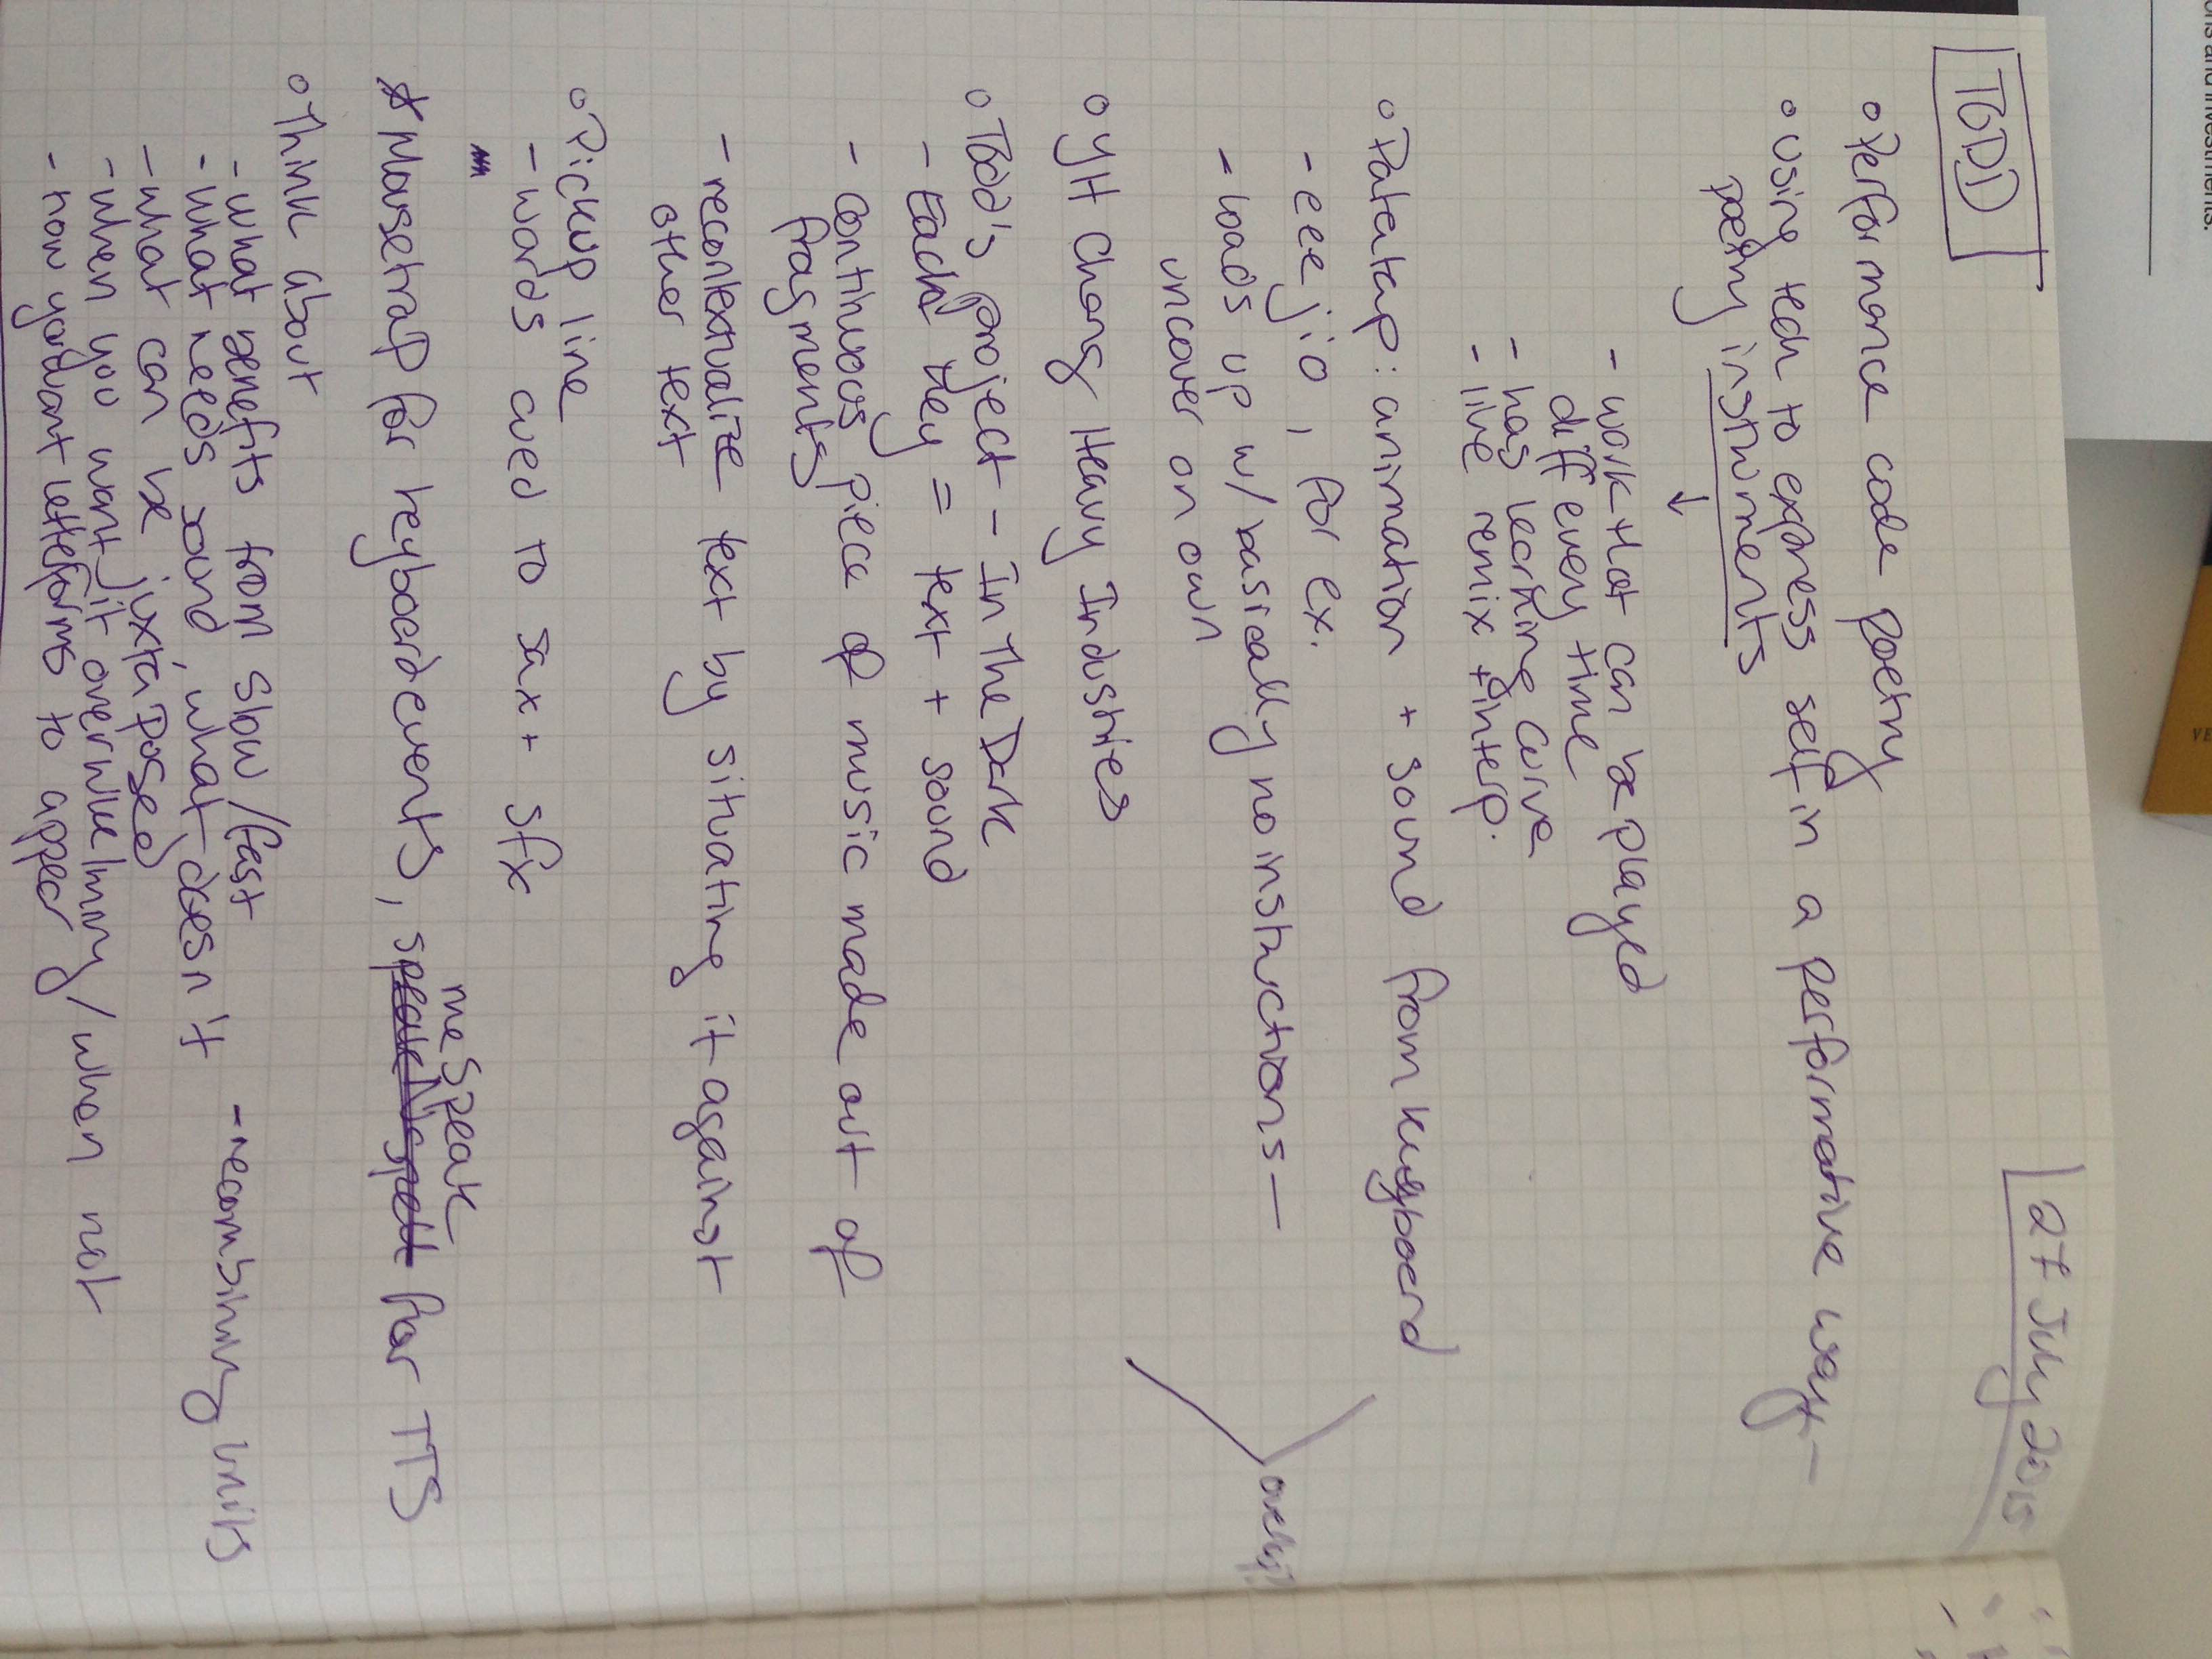 ons and investments.
VE
TODD
27 July 2015
o Performance code poetry
o using tech to express self in a performative way—
poetry instruments
↓
- work that can be played
diff every time
- has learning curve
- live remix + interp.
o Patatap: animation + sound from keyboard
- eeejio, for ex.
- loads up w/ basically no instructions—
uncover on own
o YH Chang Heavy Industries
o Todd's project - In The Dark
- Each key = text + sound
- continuous piece of music made out of
fragments
- recontextualize text by situating it against
other text
o Pickup line
- words cued to sax + sfx
* Mousetrap for keyboard events, meSpeak for TTS
o Think about
- what benefits from slow/fast
- recombining units
- what needs sound, what doesn't
- what can be juxtaposed
- when you want it overwhelming/when not
- how you want letterforms to appear